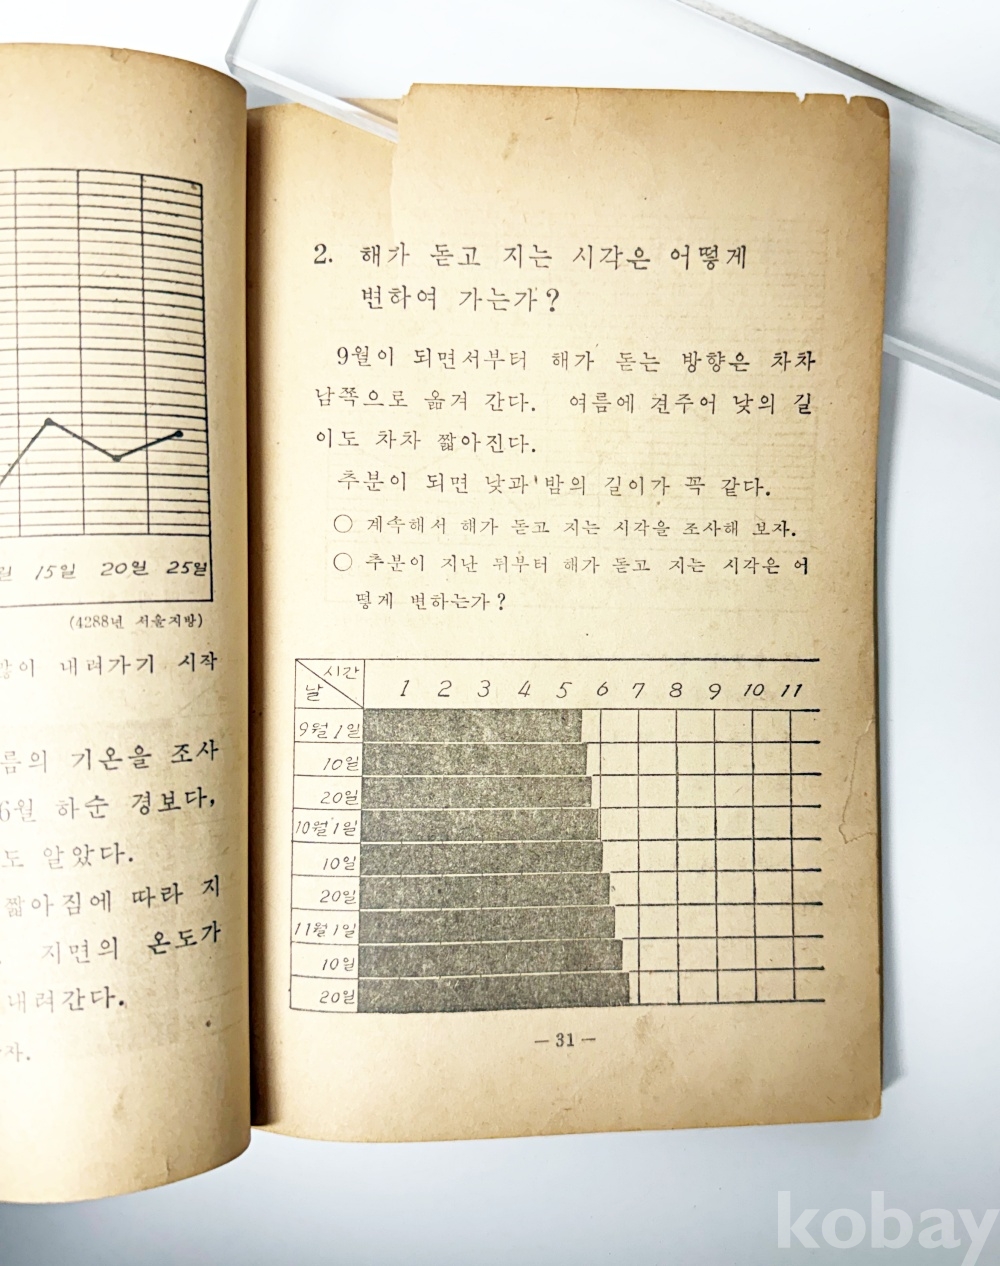 15일 20일 25일
(4288년 서울지방)
내려가기 시작
기온을 조사
6월 하순 경보다,
도 알았다.
짧아짐에 따라 지
지면의 온도가
내려간다.
2. 해가 돋고 지는 시각은 어떻게
변하여 가는가?
9월이 되면서부터 해가 돋는 방향은 차차
남쪽으로 옮겨 간다. 여름에 견주어 낮의 길
이도 차차 짧아진다.
추분이 되면 낮과 밤의 길이가 꼭 같다.
○ 계속해서 해가 돋고 지는 시각을 조사해 보자.
○ 추분이 지난 뒤부터 해가 돋고 지는 시각은 어
떻게 변하는가?
시간
날 1 2 3 4 5 6 7 8 9 10 11
9월 1일
10일
20일
10월 1일
10일
20일
11월 1일
10일
20일
— 31 —
kobay